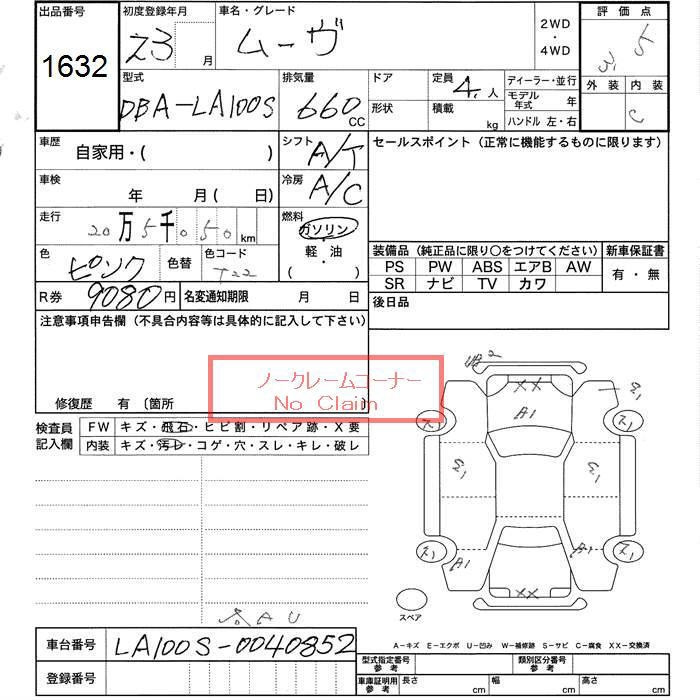 出品番号 初度登録年月 車名・グレード 2WD・4WD 評価点
1632 23 月 ムーヴ 3.5
型式 排気量 ドア 定員 4人 ディーラー・並行 外装 内装
DBA-LA100S 660 CC 形状 積載 kg モデル年式 年 C
ハンドル 左・右
車歴 自家用・( ) シフト A/T セールスポイント（正常に機能するものに限ります）
車検 年 月 ( 日) 冷房 A/C
走行 20万5千050km 燃料 ガソリン
軽・油
( )
色 ピンク 色替 色コード T22
装備品（純正品に限り〇をつけてください） 新車保証書
PS PW ABS エアB AW 有・無
SR ナビ TV カワ
R券 9080円 名変通知期限 月 日 後日品
注意事項申告欄（不具合内容等は具体的に記入して下さい）
ノークレームコーナー
No Claim
修復歴 有 〔箇所
検査員記入欄 FW キズ・飛石・ヒビ割・リペア跡・X要
内装 キズ・汚レ・コゲ・穴・スレ・キレ・破レ
XX
A1
A1
A1
XX
スペア
A-キズ E-エクボ U-凹み W-補修跡 S-サビ C-腐食 XX-交換済
車台番号 LA100S-0040852
登録番号
型式指定番号 参考 類別区分番号 参考
車庫証明用 参考 長さ cm 幅 cm 高さ cm